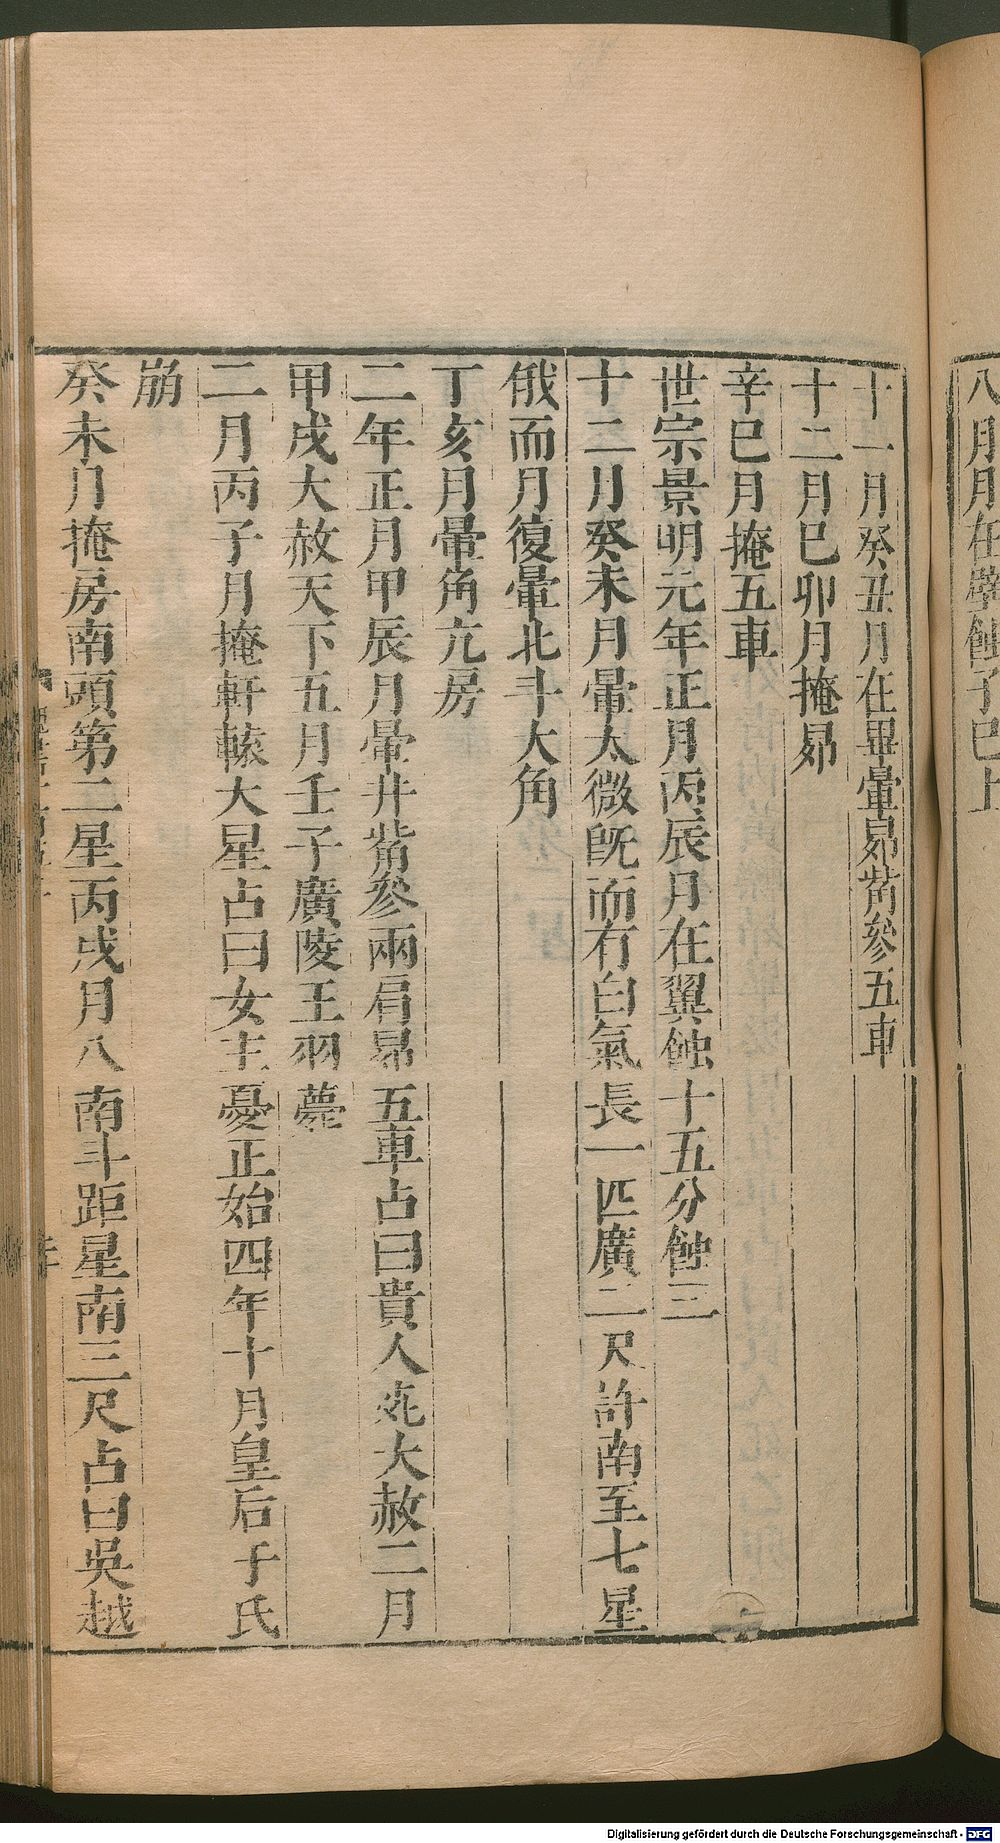 八月月在壁蝕子已上
十一月癸丑月在畢暈昴觜參五車
十二月巳卯月掩昴
辛巳月掩五車
世宗景明元年正月丙辰月在翼蝕十五分蝕三
十二月癸未月暈太微旣而有白氣長一匹廣二尺許南至七星
俄而月復暈北斗大角
丁亥月暈角亢房
二年正月甲辰月暈井觜參兩肩昴五車占曰貴人死大赦二月
甲戌大赦天下五月壬子廣陵王羽薨
二月丙子月掩軒轅大星占曰女主憂正始四年十月皇后于氏
崩
癸未月掩房南頭第二星丙戌月入南斗距星南三尺占曰吳越
Digitalisierung gefördert durch die Deutsche Forschungsgemeinschaft - DFG